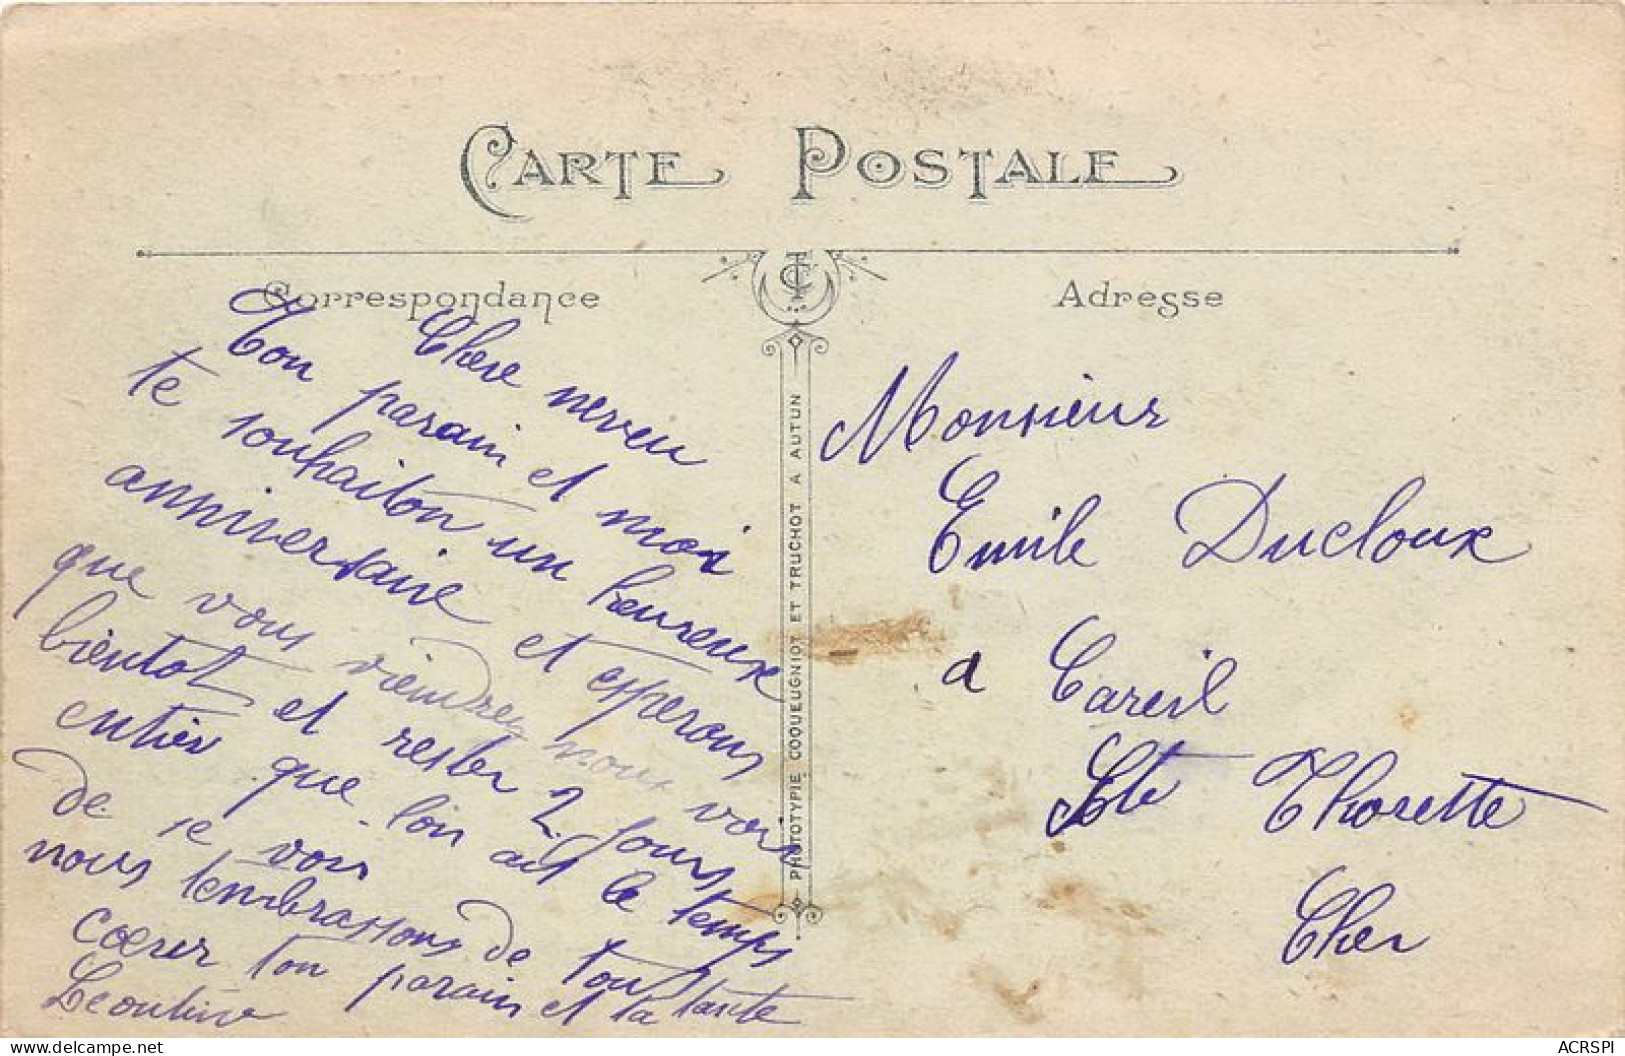 CARTE POSTALE
Correspondance
Adresse
Chere neveu
Ton parain et moi
te souhaiton un heureux
anniversaire et esperons
que vous viendrez nous voir
bientot et rester 2 jours
entier que lon ait le temps
de se voir
nous tembrassons de tout
cœur ton parain et ta tante
Leontine
PHOTOTYPIE COQUEUGNIOT ET TRUCHOT A AUTUN
Monsieur
Emile Ducloux
a Careil
Ste Thorette
Cher
ACRSPI